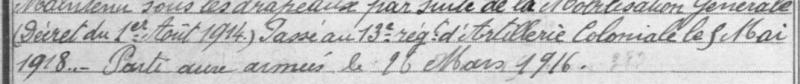 Maintenu sous les drapeaux par suite de la Mobilisation Générale
(Décret du 1er Août 1914.) Passé au 13e régt d'Artillerie Coloniale le 5 Mai
1918._ Parti aux armées le 26 Mars 1916.